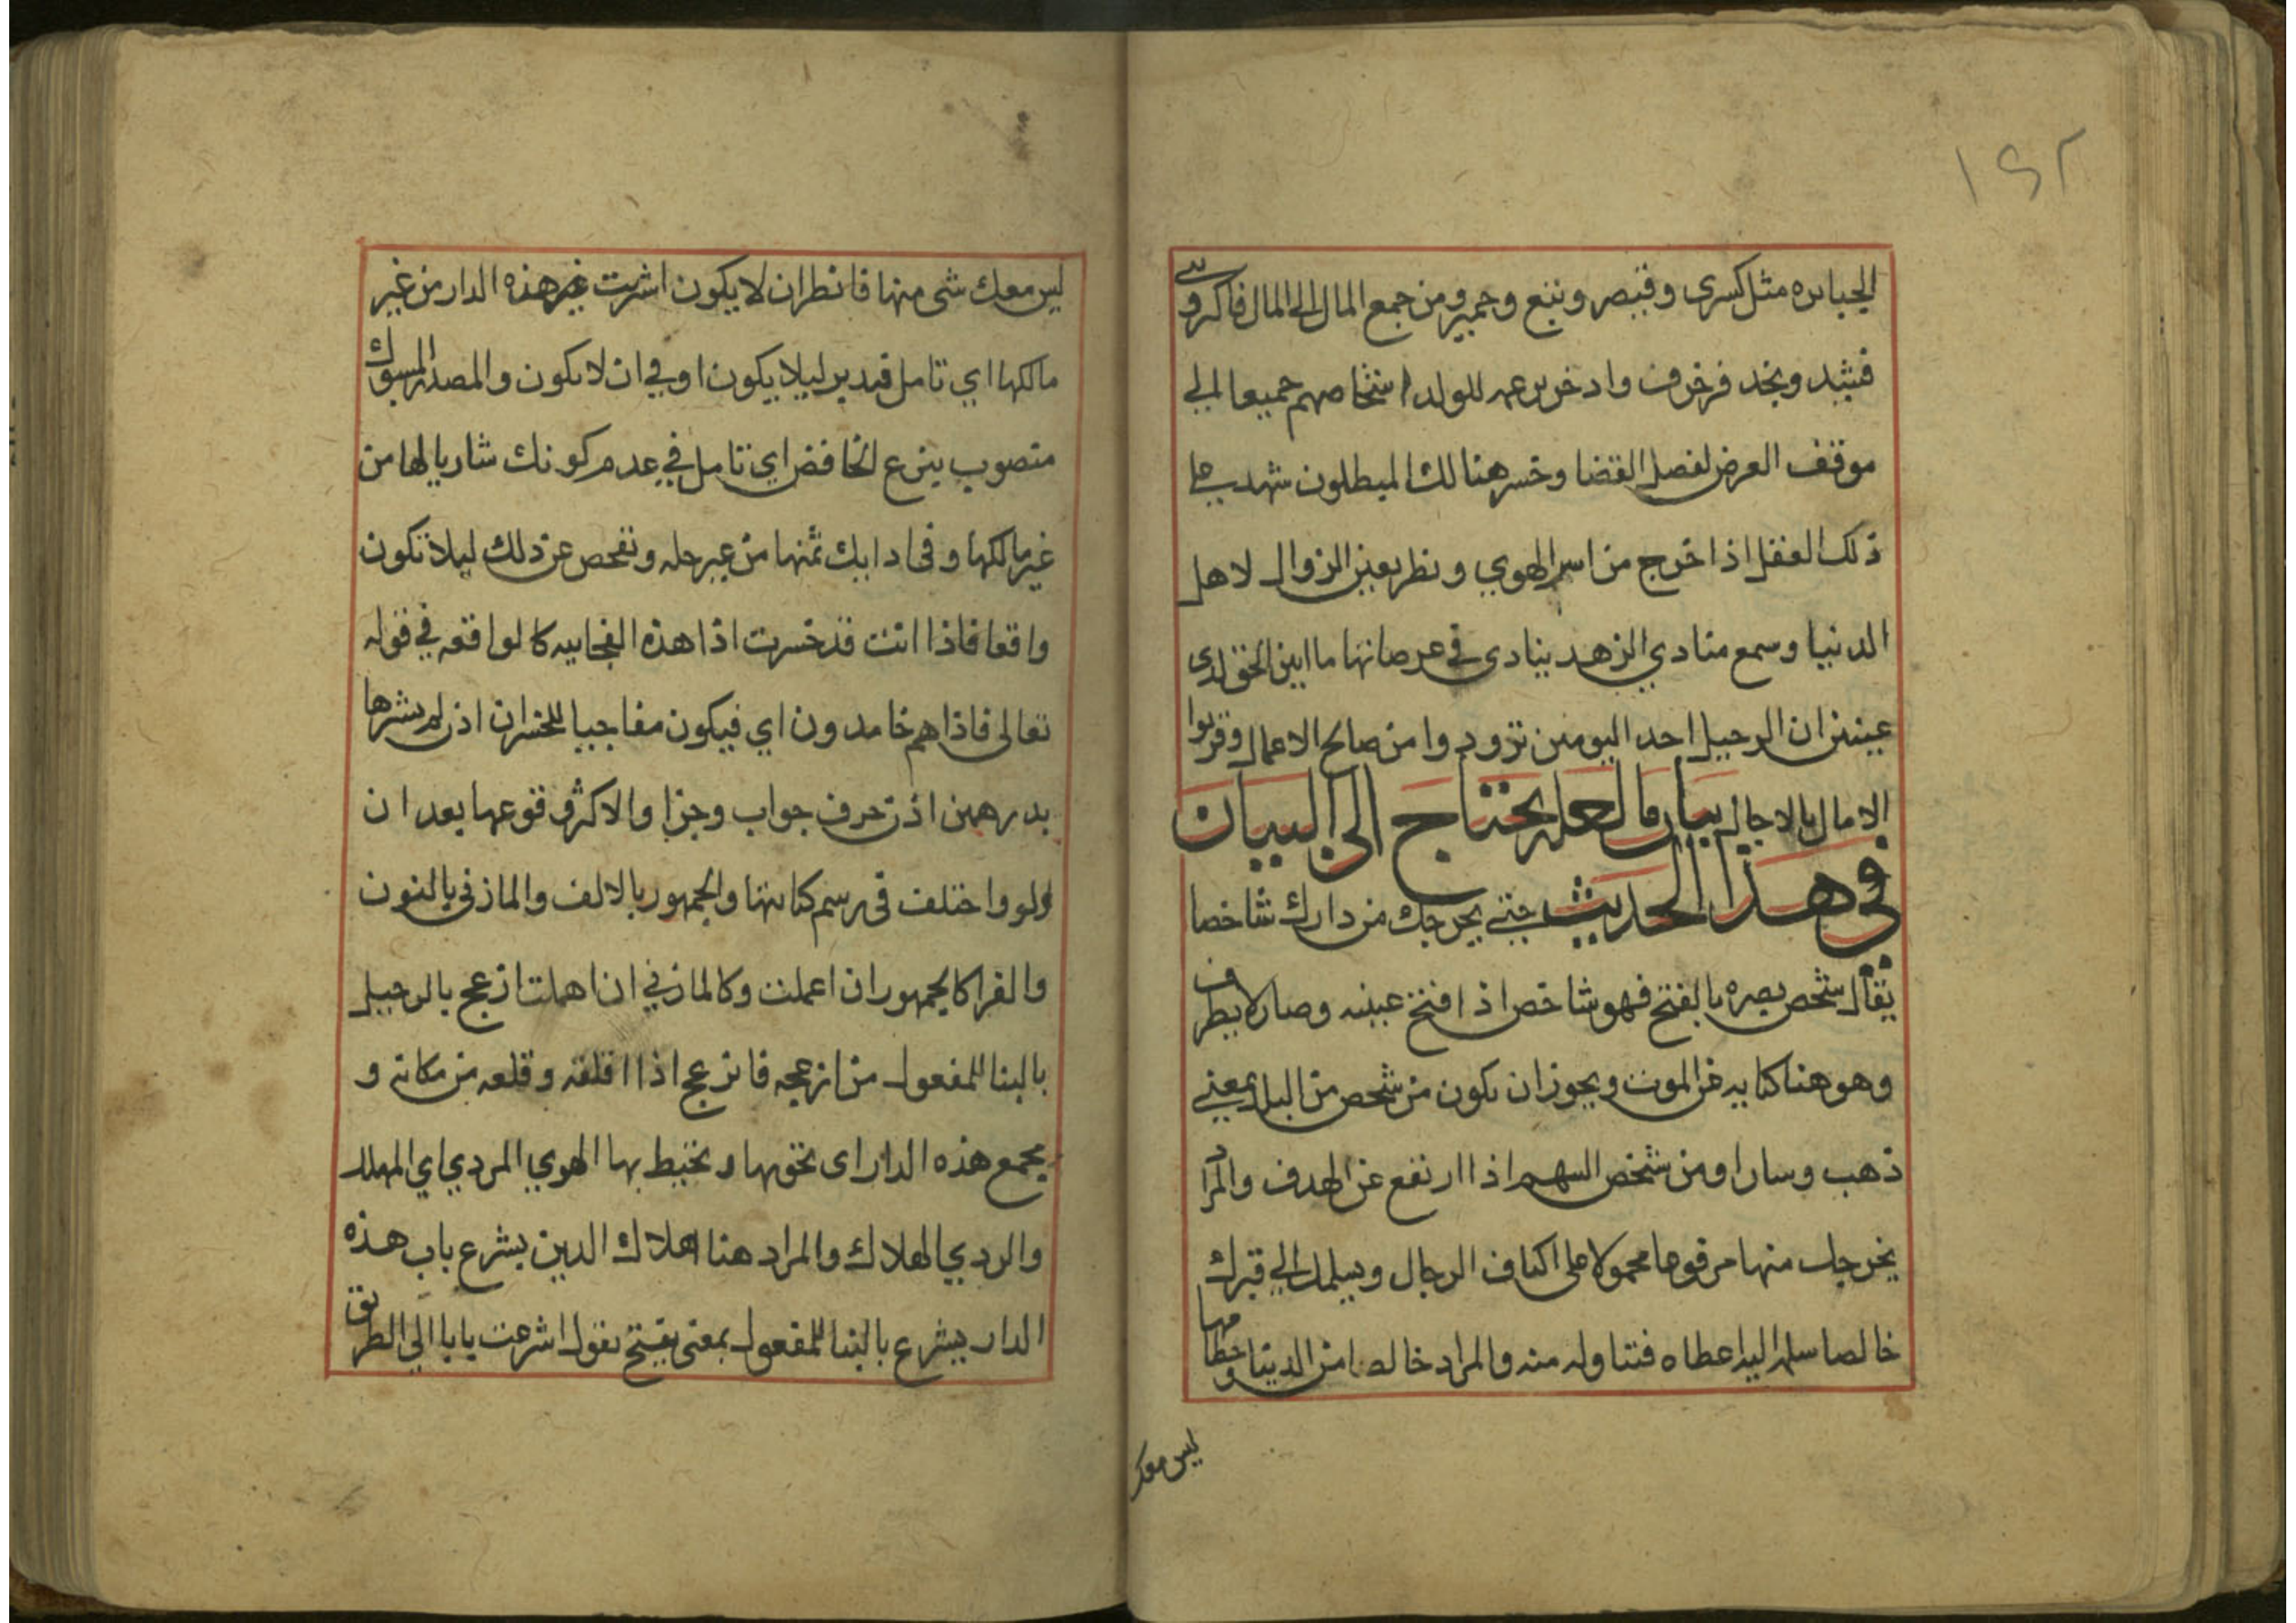 ١٤٢
الجبابره مثل كسرى وقيصر وتبع وحمير ومن جمع المال الى المال فاكثر و
فشيد ونجد فزخرف وادخر بزعمه للولد اشخاصهم جميعا الي
موقف العرض لفصل القضا وخسر هنالك المبطلون شهد علي
ذلك العقل اذا خرج من اسر الهوي ونظر بعين الزوال لاهل
الدنيا وسمع منادي الزهد ينادي في عرصاتها ما ابين الحق لذى
عينين ان الرحيل احد اليومين تزودوا من صالح الاعمال وقربوا
الامال بالاجال بيان ما لعله يحتاج الى البيان
في هذا الحديث حتى يخرجك من دارك شاخصا
يقال شخص بصره بالفتح فهو شاخص اذا فتح عينيه وصار لا يطرف
وهو هنا كنايه عن الموت ويجوز ان يكون من شخص من البلد بمعنى
ذهب وسار او من شخص السهم اذا ارتفع عن الهدف والمراد
يخرجك منها مرفوعا محمولا على اكتاف الرجال ويسلمك الي قبرك
خالصا سلمه اليه اعطاه فتناوله منه والمراد خالصا من الدنيا وحطامها
ليس معك
ليس معك شى منها فانظر ان لا يكون اشتريت هذه الدار من غير
مالكها اي تامل وتدبر ليلا يكون او في ان لا يكون والمصدر المسبوك
منصوب بنزع الخافض اي تامل في عدم كونك شاريا لها من
غير مالكها وفى ادايك ثمنها من غير حله وتفحص عن ذلك ليلا تكون
واقعا فاذا انت قد خسرت اذا هذه الفجاييه كالواقعه في قوله
تعالى فاذا هم خامدون اي فيكون مفاجيا للخسران اذن لم تشرها
بدرهمين اذن حرف جواب وجزا والاكثر وقوعها بعد ان
ولو واختلف في رسم كتابتها والجمهور بالالف والمازني بالنون
والفرا كالجمهور ان اعملت وكالمازني ان اهملت ازعج بالرحيل
بالبنا للمفعول من ازعجه فانزعج اذا اقلقه وقلعه من مكانه و
يجمع هذه الدار اى تحوتها وتحيط بها الهوي المردي اي المهلك
والردي الهلاك والمراد هنا اهلاك الدين يشرع باب هذه
الدار يشرع بالبنا للمفعول بمعنى يفتح تقول اشرعت بابا الي الطريق